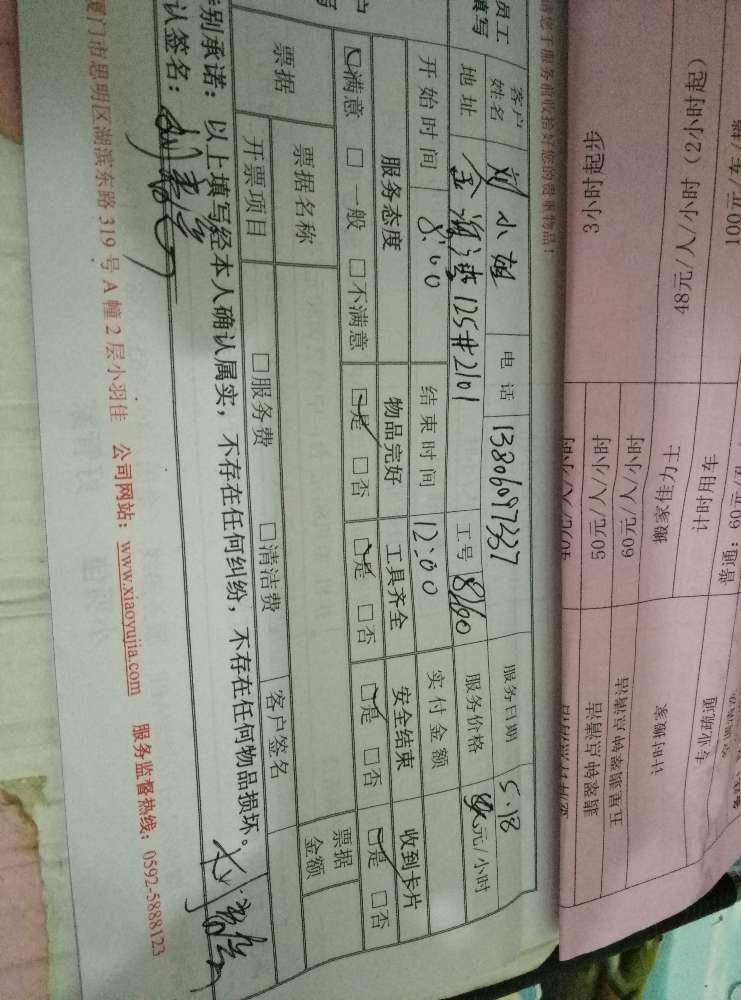 请您于服务前收拾好您的贵重物品!
员工填写 客户姓名 刘小姐 电话 13806097337 服务日期 5.18
地址 125#2101 工号 8260 服务价格 元/小时
开始时间 8:00 结束时间 12:00 实付金额
服务态度 物品完好 工具齐全 安全结束 收到卡片
☑满意 □一般 □不满意 ☑是 □否 ☑是 □否 ☑是 □否 ☑是 □否
票据 票据名称 客户签名 票据金额
开票项目 □服务费 □清洁费
特别承诺:以上填写经本人确认属实,不存在任何纠纷,不存在任何物品损坏。
认签名:
厦门市思明区湖滨东路 319 号 A 幢 2 层小羽佳 公司网站:www.xiaoyujia.com 服务监督热线:0592-5888123
计时搬家 搬家佳力士 48元/人/小时(2小时起)
专业疏通 计时用车
五星翡翠钟点清洁 60元/人/小时 3小时起步
翡翠钟点清洁 50元/人/小时
100元/
普通:60元/